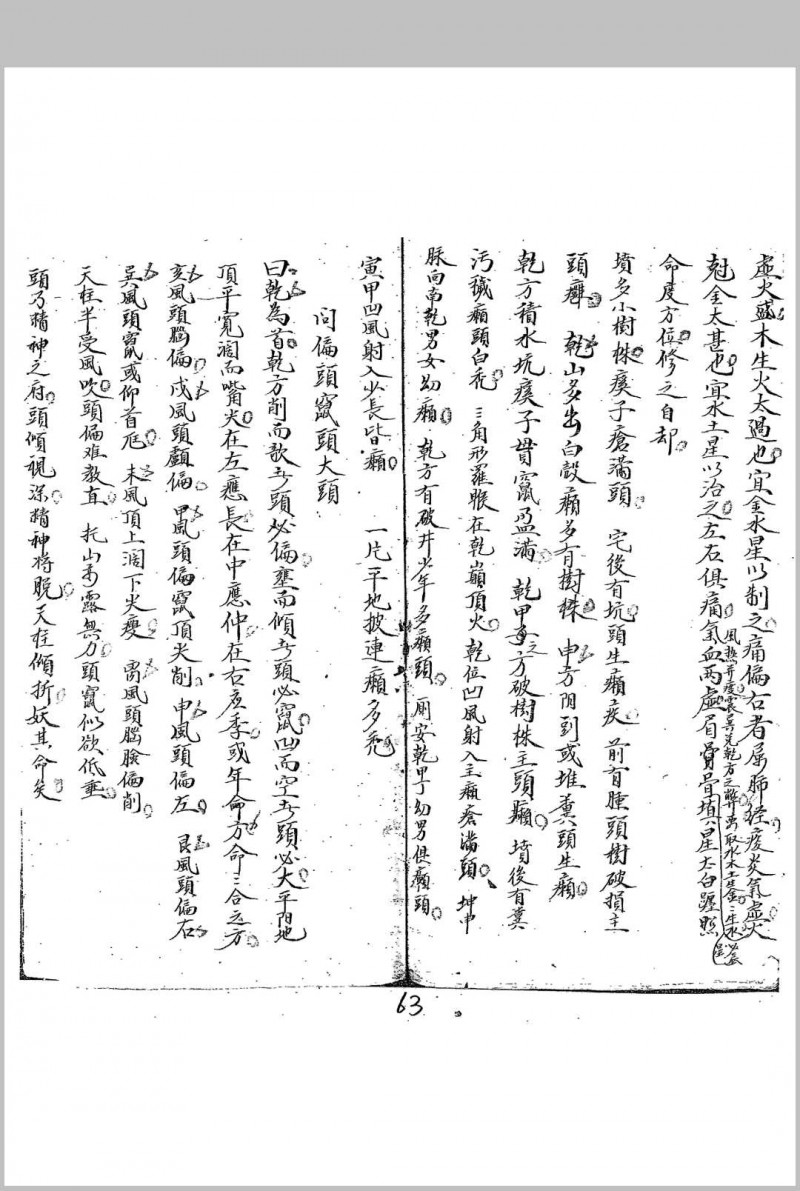 虛火盛木生火太過也宜金水星以制之痛偏右者屬肺經痰炎氣虛火
尅金太甚也宜水土星以治之左右俱痛氣血兩虛眉骨填星太白躔照
命度方位修之自却
墳多小樹株瘼子瘡滿頭 宅後有坑頭生癩疾 前有腫頭樹破損主
頭癬 乾山多出白殼癩多有樹株 申方阴到或堆糞頭生癩
乾方積水坑瘼子母竄盈滿 乾甲之方破樹株主頭癩 墳後有糞
污穢癩頭白禿 三角形羅睺在乾巔頂火 乾位凹風射入主癩瘡滿頭 坤申
脉向南乾男女幼癩 乾方有破井少年多癩頭 厠安乾甲丁幼男俱癩頭
寅甲凹風射入少長皆癩 一片平地披連癩多禿
问偏頭竄頭大頭
曰乾為首乾方削而欹者頭必偏壅而傾者頭必竄凹而空者頭必大平陽地
頂平寬濶而嘴尖在左應長在中應仲在右应季或年命方命三合之方
亥風頭腦偏 戌風頭顱偏 甲風頭偏竄頂尖削 申風頭偏左 艮風頭偏右
巽風頭竄或仰首尫 未風頂上濶下尖瘦 离風頭腦臉偏削
天柱半受風吹頭偏难教直 托山高露無力頭竄似欲低垂
頭乃精神之府頭傾視深精神将脫天柱傾折妖其命矣
63